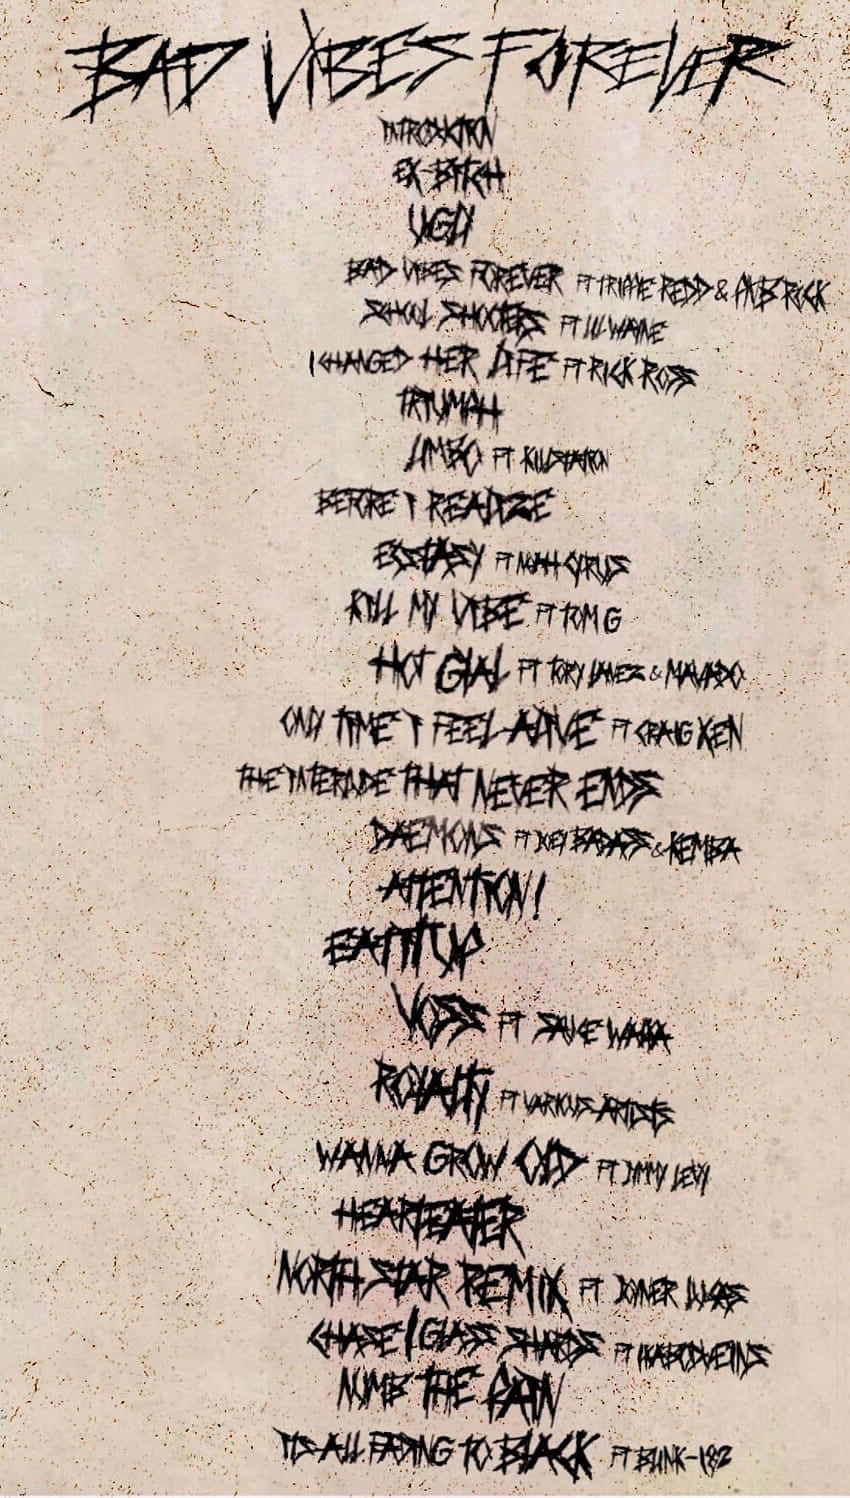 BAD VIBES FOREVER
INTRODUCTION
EX-BITCH
UGLY
BAD VIBES FOREVER FT TRIPPIE REDD & PNB ROCK
SCHOOL SHOOTERS FT LIL WAYNE
I CHANGED HER LIFE FT RICK ROSS
TRIUMPH
LIMBO FT KILLSTATION
BEFORE I REALIZE
ECSTASY FT NOAH CYRUS
KILL MY VIBE FT TOM G
HOT GYAL FT TORY LANEZ & MAVADO
ONLY TIME I FEEL ALIVE FT CRAIG XEN
THE INTERLUDE THAT NEVER ENDS
DAEMONS FT JOEY BADASS & KEMBA
ATTENTION!
EAT IT UP
VOSS FT SAUCE WALKA
ROYALTY FT VARIOUS ARTISTS
WANNA GROW OLD FT JIMMY LEVY
HEARTEATER
NORTH STAR REMIX FT JOYNER LUCAS
CHASE / GLASS SHARDS FT IKABODVEINS
NUMB THE PAIN
ITS ALL FADING TO BLACK FT BLINK-182